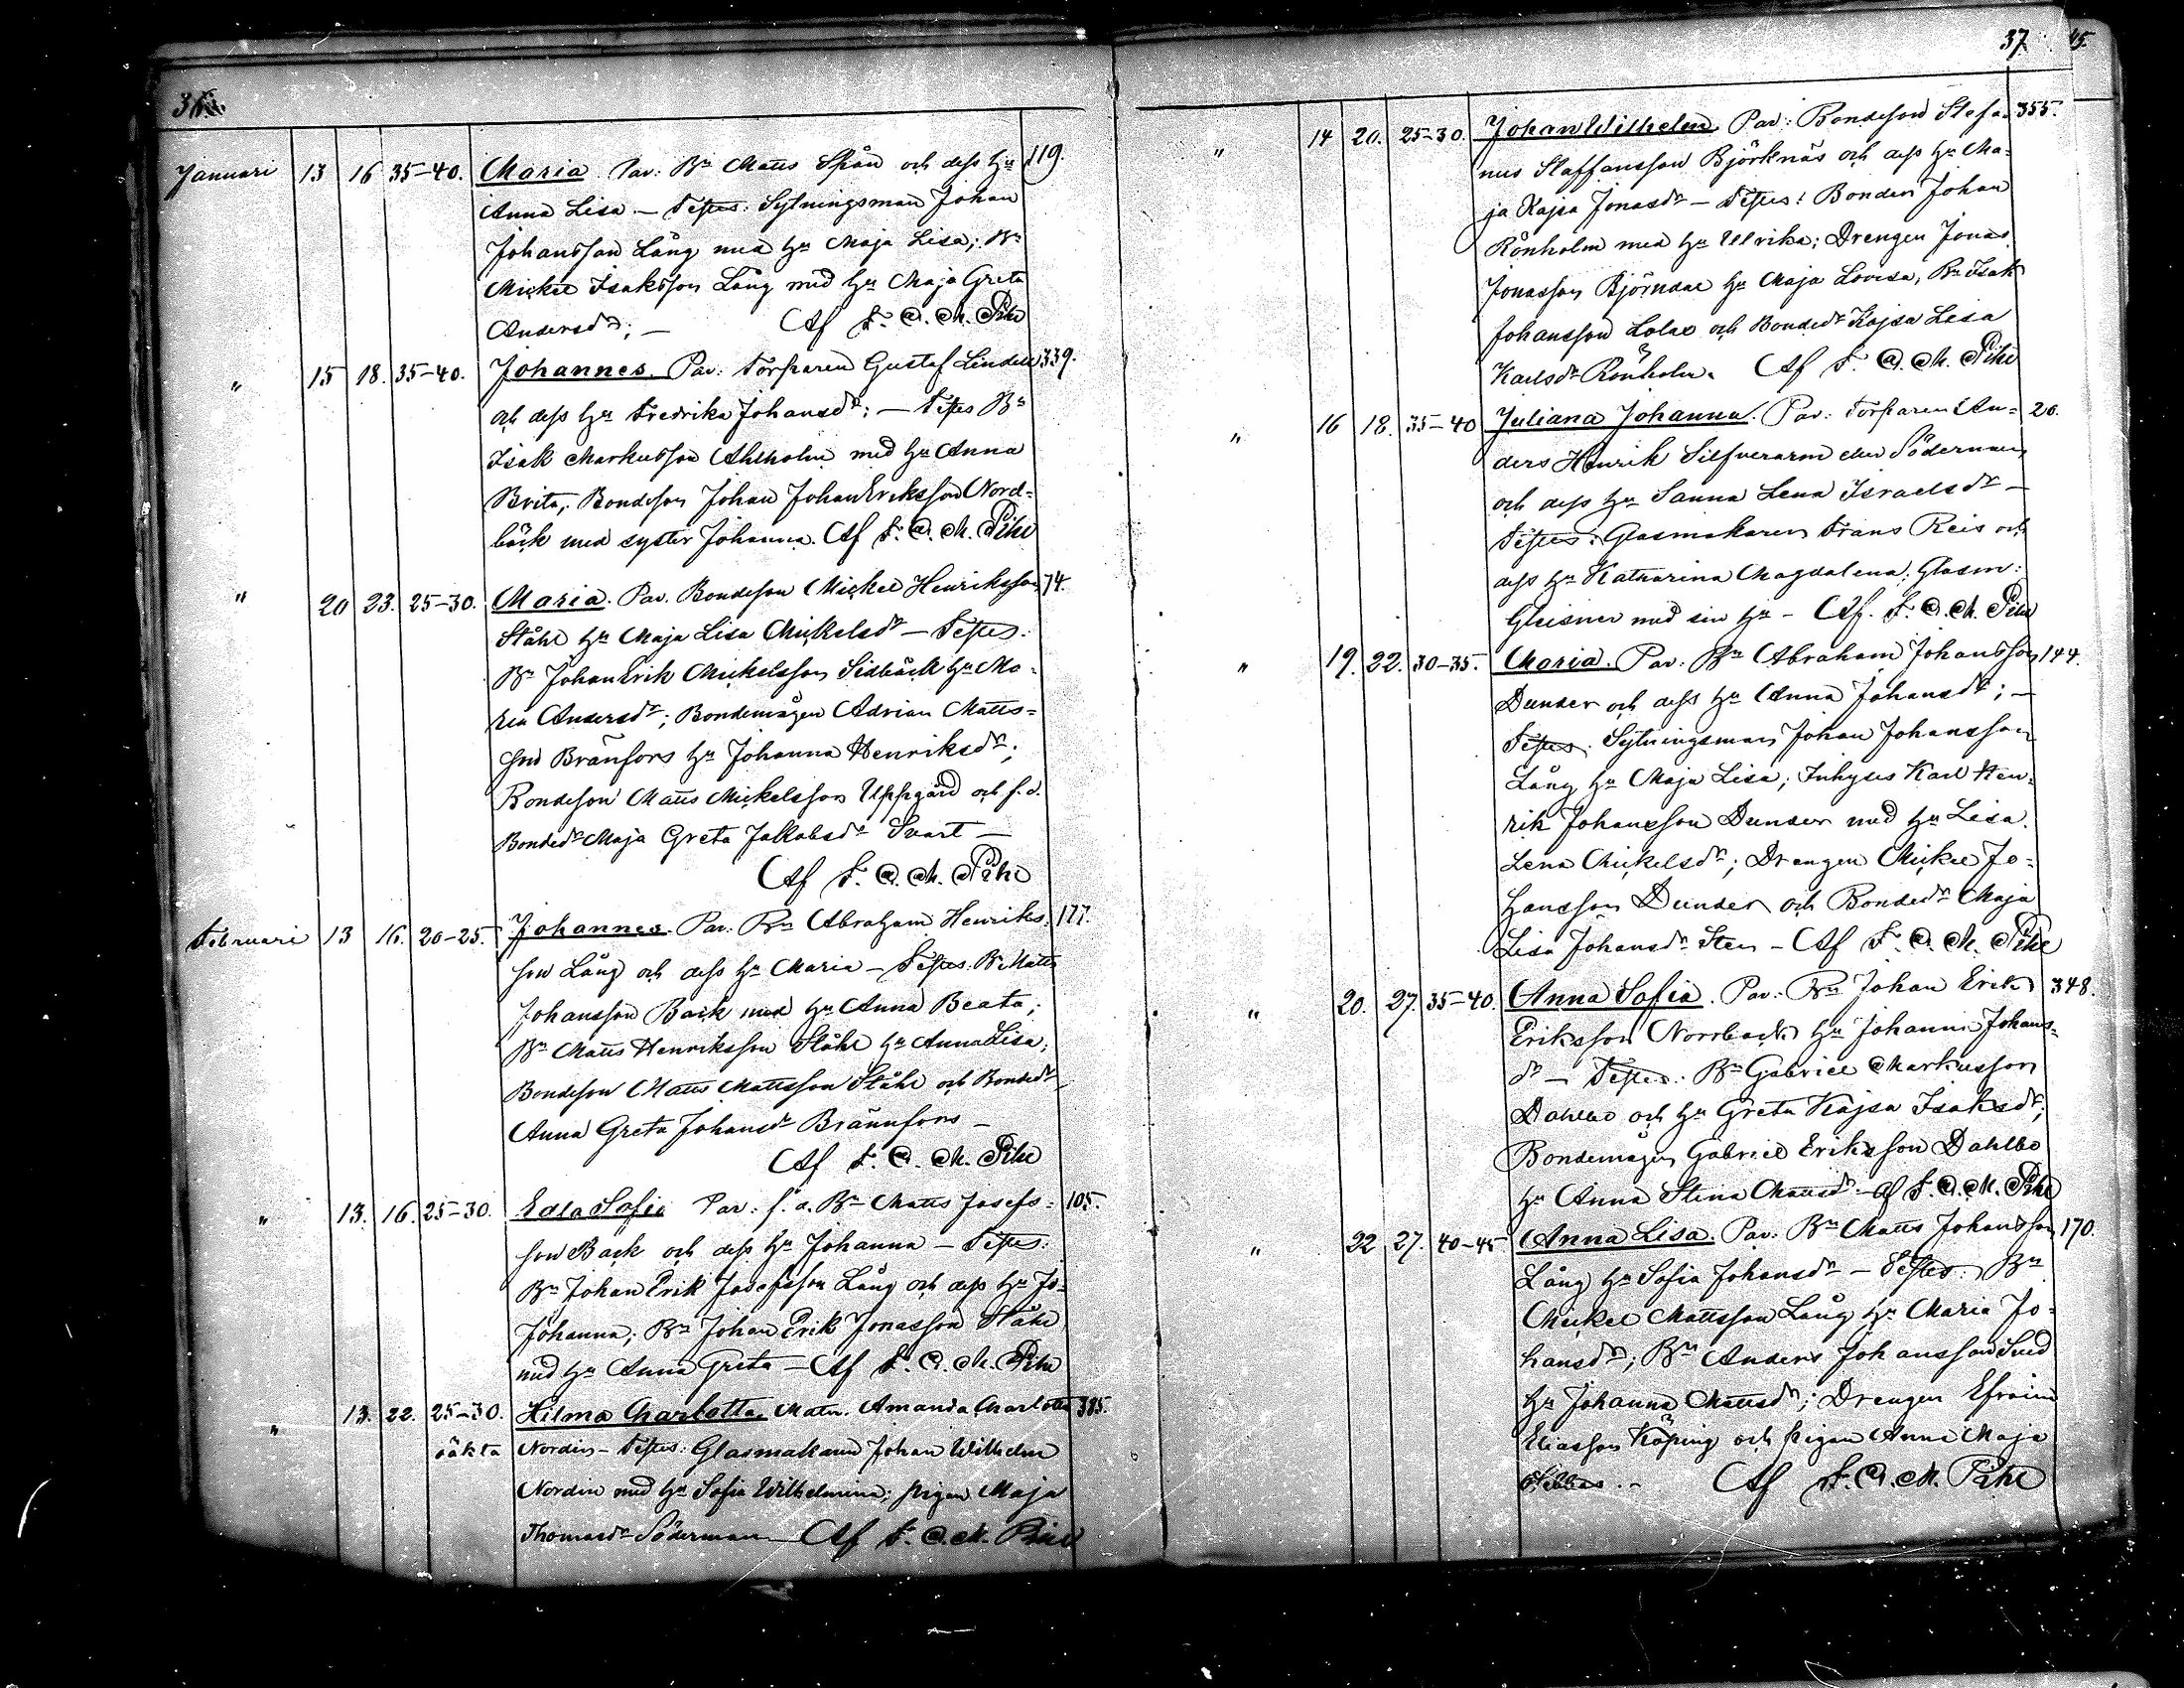 36.
Januari 13 16 35-40. Maria. Par: Bn Matts Spån och dess hu 119.
Anna Lisa — Testes: Sytningsman Johan
Johansson Lång med hu Maja Lisa; Bn
Mickel Isaksson Lång med hu Maja Greta
Andersdr; — Af F. A. M. Pihl
" 15 18. 35-40. Johannes. Par: Torparen Gustaf Lindell 339.
och dess hu Fredrika Johansdr; — Testes Bn
Isak Markusson Ahlholm med hu Anna
Brita, Bondeson Johan Johan Eriksson Nord=
bäck med syster Johanna. Af F. A. M. Pihl
" 20 23. 25-30. Maria. Par. Bondeson Mickel Henriksson 74.
Ståhl hu Maja Lisa Mickelsdr — Testes:
Bn Johan Erik Mickelsson Sidbäck hu Ma=
ria Andersdr; Bondemågen Adrian Matts=
son Brånfors hu Johanna Henriksdr;
Bondeson Matts Mickelsson Uppgård och f.d.
Bondedr Maja Greta Jakobsdr Svart —
Af F. A. M. Pihl
Februari 13 16. 20-25. Johannes. Par: Bn Abraham Henriks= 177.
son Lång och dess hu Maria — Testes: Bn Matts
Johansson Back med hu Anna Beata;
Bn Matts Henriksson Ståhl hu Anna Lisa;
Bondeson Matts Mattsson Ståhl och Bondedr
Anna Greta Johansdr Brännfors —
Af F. A. M. Pihl
" 13. 16. 25-30. Edla Sofia Par: f.d. Bn Matts Josefs= 105.
son Back och dess hu Johanna — Testes:
Bn Johan Erik Josefsson Lång och dess hu Jo=
Johanna; Bn Johan Erik Jonasson Ståhl
med hu Anna Greta — Af F. A. M. Pihl
" 13. 22. 25-30. Hilma Charlotta. Matr. Amanda Charlotta 385.
oäkta Nordin — Testes: Glasmakaren Johan Wilhelm
Nordin med hu Sofia Wilhelmina; pigan Maja
Thomasdr Söderman — Af F. A. M. Pihl
37. 45.
" 14 20. 25-30. Johan Wilhelm. Par: Bondeson Stefa= 355.
nus Staffansson Björknäs och dess hu Ma=
ja Kajsa Jonasdr — Testes: Bonden Johan
Rönholm med hu Ulrika; Drengen Jonas
Jonasson Björndal hu Maja Lovisa, Bn Isak
Johansson Lolax och Bondedr Kajsa Lisa
Karlsdr Rönholm. Af F. A. M. Pihl
" 16 18. 35-40 Juliana Johanna. Par: Torparen An= 20.
ders Henrik Silfverarm eller Söderman
och dess hu Sanna Lena Israelsdr —
Testes: Glasmakaren Frans Reis och
dess hu Katharina Magdalena; Glasm:
Gleisner med sin hu — Af. F. A. M. Pihl
" 19. 22. 30-35. Maria. Par: Bn Abraham Johansson 144.
Dunder och dess hu Anna Johansdr; —
Testes: Sytningsman Johan Johansson
Lång hu Maja Lisa; Inhyses Karl Hen=
rik Johansson Dunder med hu Lisa
Lena Mickelsdr; Drengen Mickel Jo=
hansson Dunder och Bondedr Maja
Lisa Johansdr Sten — Af F. A. M. Pihl
" 20. 27. 35-40. Anna Sofia. Par: Bn Johan Erik 348.
Eriksson Norrback hu Johanna Johans=
dr — Testes: Bn Gabriel Markusson
Dahlbo och hu Greta Kajsa Isaksdr;
Bondemågen Gabriel Eriksson Dahlbo
hu Anna Stina Mattsdr — Af F. A. M. Pihl
" 22 27. 40-45 Anna Lisa. Par: Bn Matts Johansson 170.
Lång hu Sofia Johansdr — Testes: Bn
Mickel Mattsson Lång hu Maria Jo=
hansdr; Bn Anders Johansson Sved
hu Johanna Mattsdr; Drengen Efraim
Eliasson Köping och pigan Anna Maja
Af F. A. M. Pihl